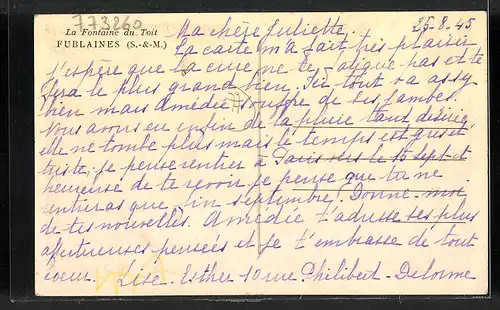 773260
La Fontaine du Toit
FUBLAINES (S.-&-M.)
25-8-45
Ma chère Juliette.
La carte m'a fait très plaisir
j'espère que la cure ne te fatigue pas et te
fera le plus grand bien. Ici tout va assez
bien mais Amédée souffre de ses jambes.
Nous avons eu enfin de la pluie tant désirée,
elle ne tombe plus mais le temps est gris et
triste, je pense rentrer à Paris vers le 15 Sept et
heureuse de te revoir je pense que tu ne
rentreras que fin septembre. Donne-moi
de tes nouvelles. Amédée t'adresse ses plus
affectueuses pensées et je t'embrasse de tout
coeur. Lise. Esther 10 rue Philibert-Delorme